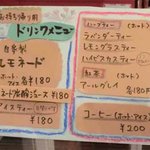 お持ち帰り用
ドリンクメニュー
自家製
レモネード
ホット
アイス 各¥180
レモネード炭酸ジュース ¥180
アイスティー ¥180
ハーブティー (ホット・アイス)
ラベンダーティー
レモングラスティー
ハイビスカスティー
紅茶 (ホット)
アールグレイ
各180円
コーヒー(ホット・アイス)
¥200